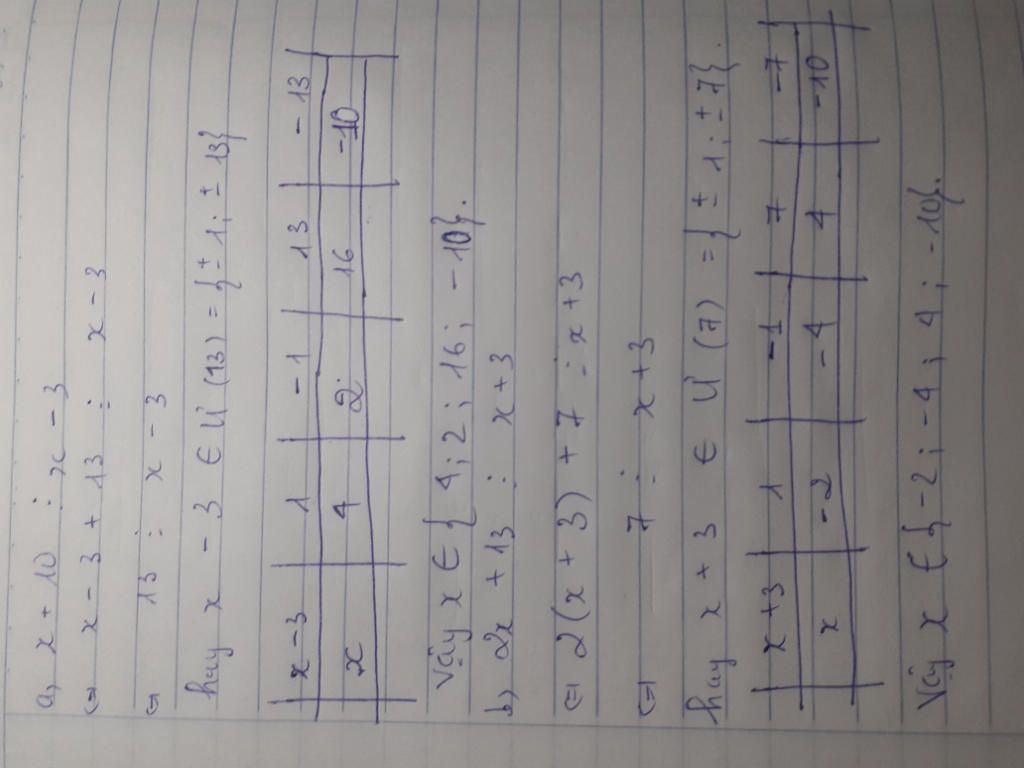 a, x + 10 ⋮ x - 3
⇔ x - 3 + 13 ⋮ x - 3
⇔ 13 ⋮ x - 3
hay x - 3 ∈ Ư (13) = { ± 1 ; ± 13}
x - 3 1 - 1 13 - 13
x 4 2 16 -10
Vậy x ∈ { 4 ; 2 ; 16 ; - 10}.
b, 2x + 13 ⋮ x + 3
⇔ 2(x + 3) + 7 ⋮ x + 3
⇔ 7 ⋮ x + 3
hay x + 3 ∈ Ư (7) = { ± 1 ; ± 7}.
x + 3 1 - 1 7 - 7
x - 2 - 4 4 - 10
Vậy x ∈ { - 2 ; - 4 ; 4 ; - 10}.